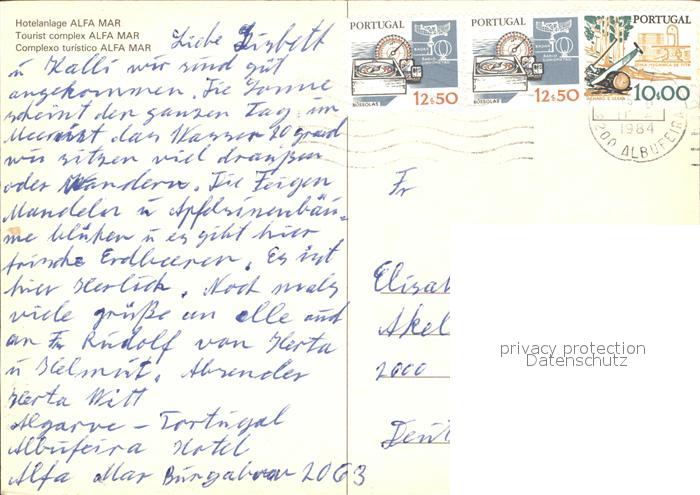 Hotelanlage ALFA MAR
Tourist complex ALFA MAR
Complexo turístico ALFA MAR
Liebe Lisbett
u Kalli wir sind gut
angekommen. Die Sonne
scheint den ganzen Tag im
Meer ist das Wasser 20 grad
wir sitzen viel draußen
oder Wandern. Die Feigen
Mandeln u Apfelsinenbäu-
me blühen u es gibt hier
frische Erdbeeren. Es ist
hier Herlich. Noch mals
viele grüße an alle und
an Fr Rudolf von Herta
u Helmut. Absender
Herta Witt
Algarve - Portugal
Albufeira Hotel
Alfa Mar 2063
PORTUGAL
BÚSSOLAS
12$50
PORTUGAL
BÚSSOLAS
12$50
PORTUGAL
10$00
1984
ALBUFEIRA
Fr
Elisab
Akel
2000
Deut
privacy protection
Datenschutz